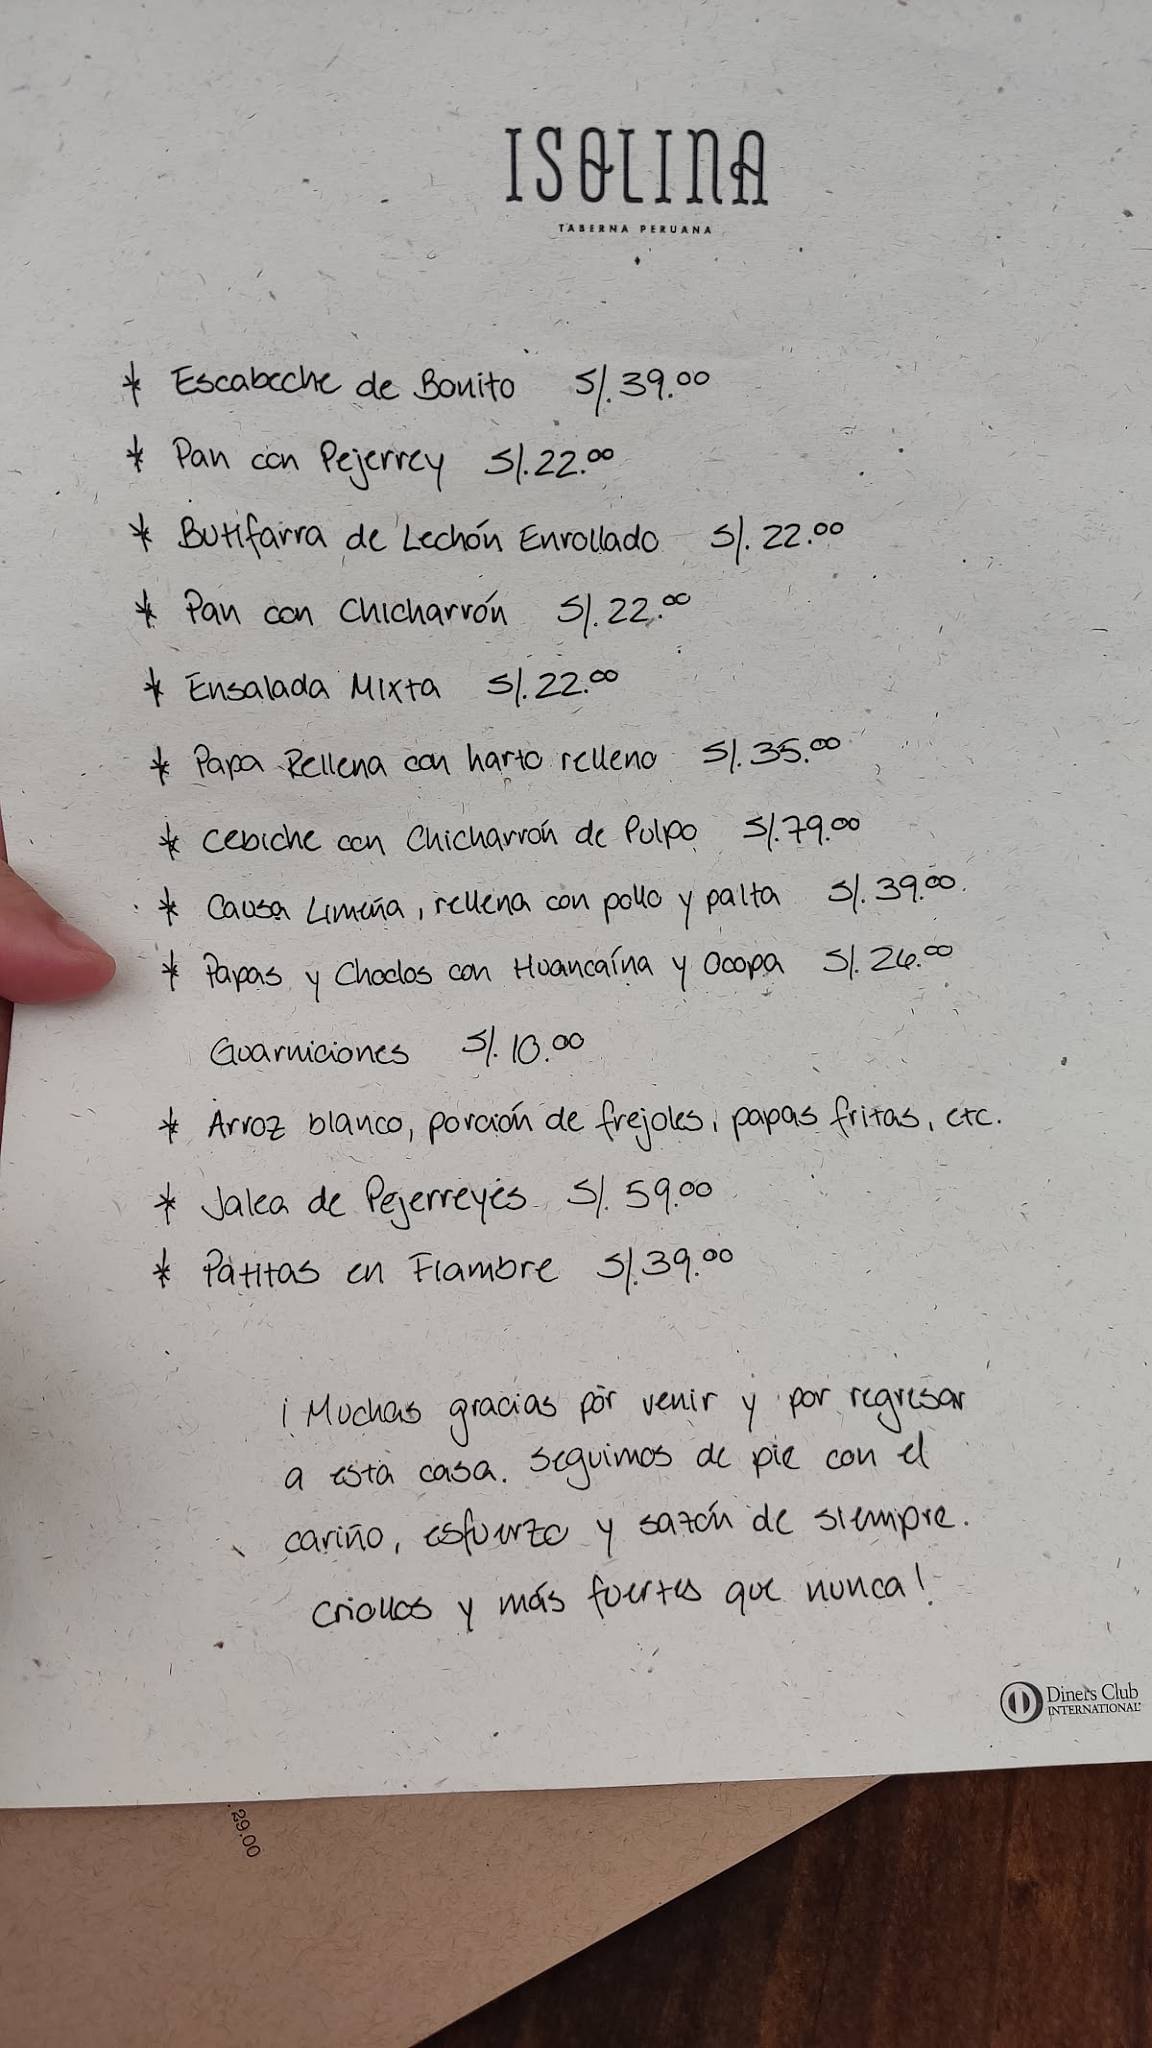 ISOLINA
TABERNA PERUANA
* Escabeche de Bonito S/.39.00
* Pan con Pejerrey S/.22.00
* Butifarra de Lechón Enrollado S/. 22.00
* Pan con Chicharrón S/. 22.00
* Ensalada Mixta S/. 22.00
* Papa Rellena con harto relleno S/. 35.00
* Cebiche con Chicharrón de Pulpo S/.79.00
* Causa Limeña, rellena con pollo y palta S/. 39.00.
* Papas y Choclos con Huancaína y Ocopa S/. 26.00
Guarniciones S/. 10.00
* Arroz blanco, porción de frejoles, papas fritas, etc.
* Jalea de Pejerreyes S/. 59.00
* Patitas en Fiambre S/.39.00
¡Muchas gracias por venir y por regresar
a esta casa. Seguimos de pie con el
cariño, esfuerzo y sazón de siempre.
Criollos y más fuertes que nunca!
Diners Club
INTERNATIONAL®
. 29.00